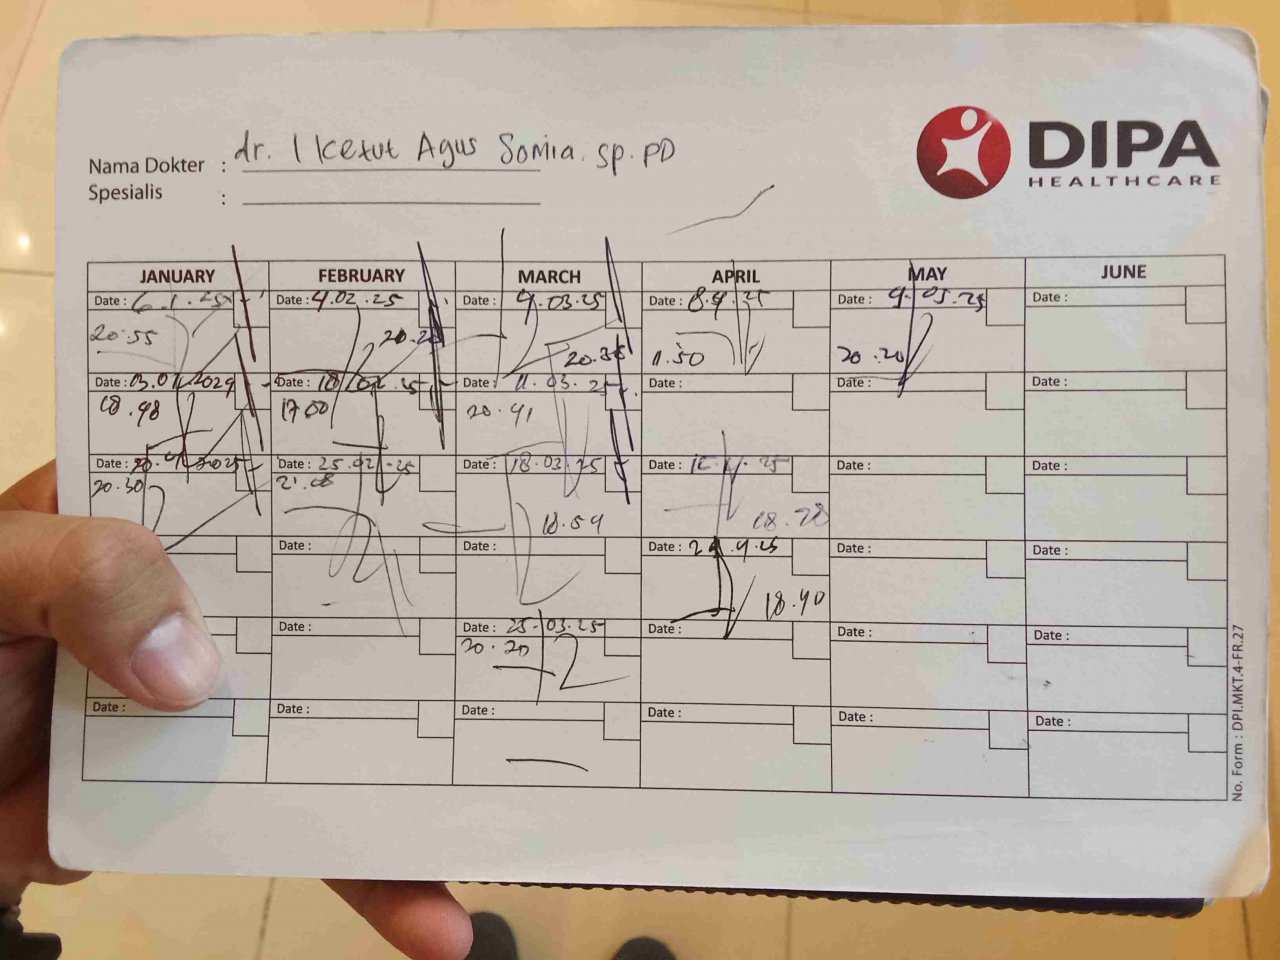 DIPA
HEALTHCARE
Nama Dokter : dr. I Ketut Agus Somia. sp. PD
Spesialis :
JANUARY FEBRUARY MARCH APRIL MAY JUNE
Date : 6.1.25 Date : 4.02.25 Date : 4.03.25 Date : 8.4.25 Date : 9.05.25 Date :
20.55 20.25 20.35 11.50 20.20
Date : 03.01.2029 Date : 18.02.25 Date : 11.03.25 Date : Date : Date :
18.48 17.00 20.41
Date : 20.01.2025 Date : 25.02.25 Date : 18.03.25 Date : 15.4.25 Date : Date :
20.30 21.08 18.59 18.28
Date : Date : Date : 29.4.25 Date : Date :
18.40
Date : Date : 25.03.25 Date : Date : Date :
20.20
Date : Date : Date : Date : Date : Date :
No. Form : DPI.MKT.4-FR.27